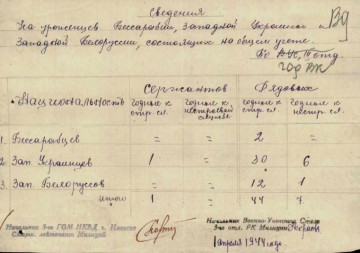 Сведения
На уроженцев Бессарабии, Западной Украины и
Западной Белоруссии, состоящих на общем учете
Национальность
Сержантов Рядовых
годные к стр. сл. годные к нестроевой службе годные к стр. сл. годные к нестр. сл.
1 Бессарабцев = = 2 =
2 Зап. Украинцев 1 = 30 6
3 Зап. Белоруссов = = 12 1
итого 1 = 44 7
Начальник 3-го ГОМ НКВД г.
Старш. лейтенант Милиции
Начальник Военно-Учетного Стола
3-го отд. РК Милиции
1 апреля 1944 года